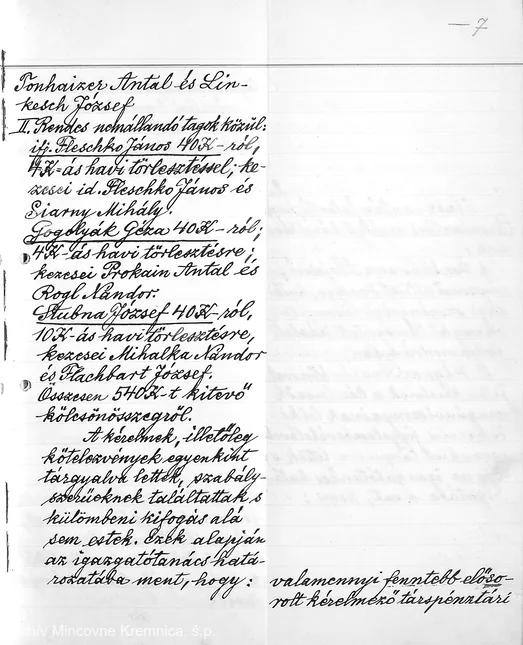 — 7
Tonhaizer Antal és Lin-
kesch József
II. Rendes nemállandó tagok közül:
ifj. Fleschko János 40K-ról,
4K-ás havi törlesztéssel; ke-
zesei id. Fleschko János és
Siarny Mihály.
Gogolyák Géza 40K-ról;
4K-ás havi törlesztésre;
kezesei Prokain Antal és
Rogl Nándor.
Stubna József 40K-ról,
10K-ás havi törlesztésre,
kezesei Mihalka Nándor
és Flachbart József.
Összesen 540K-t kitevő
kölcsönösszegről.
A kérelmek, illetőleg
kötelezvények egyenkint
tárgyalva lettek, szabály-
szerüeknek találtattak s
külömbeni kifogás alá
sem estek. Ezek alapján
az igazgatótanács hatá-
rozatába ment, hogy:
valamennyi fenntebb előso-
rolt kérelmező társpénztári
Archív Mincovne Kremnica, š.p.